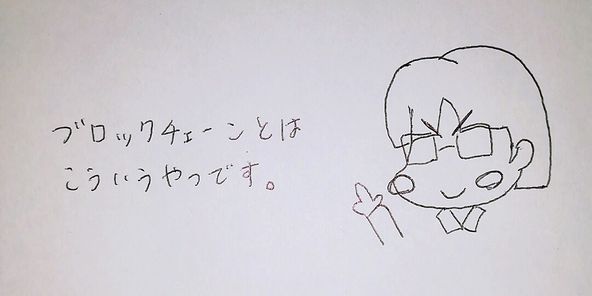 ブロックチェーンとは
こういうやつです。